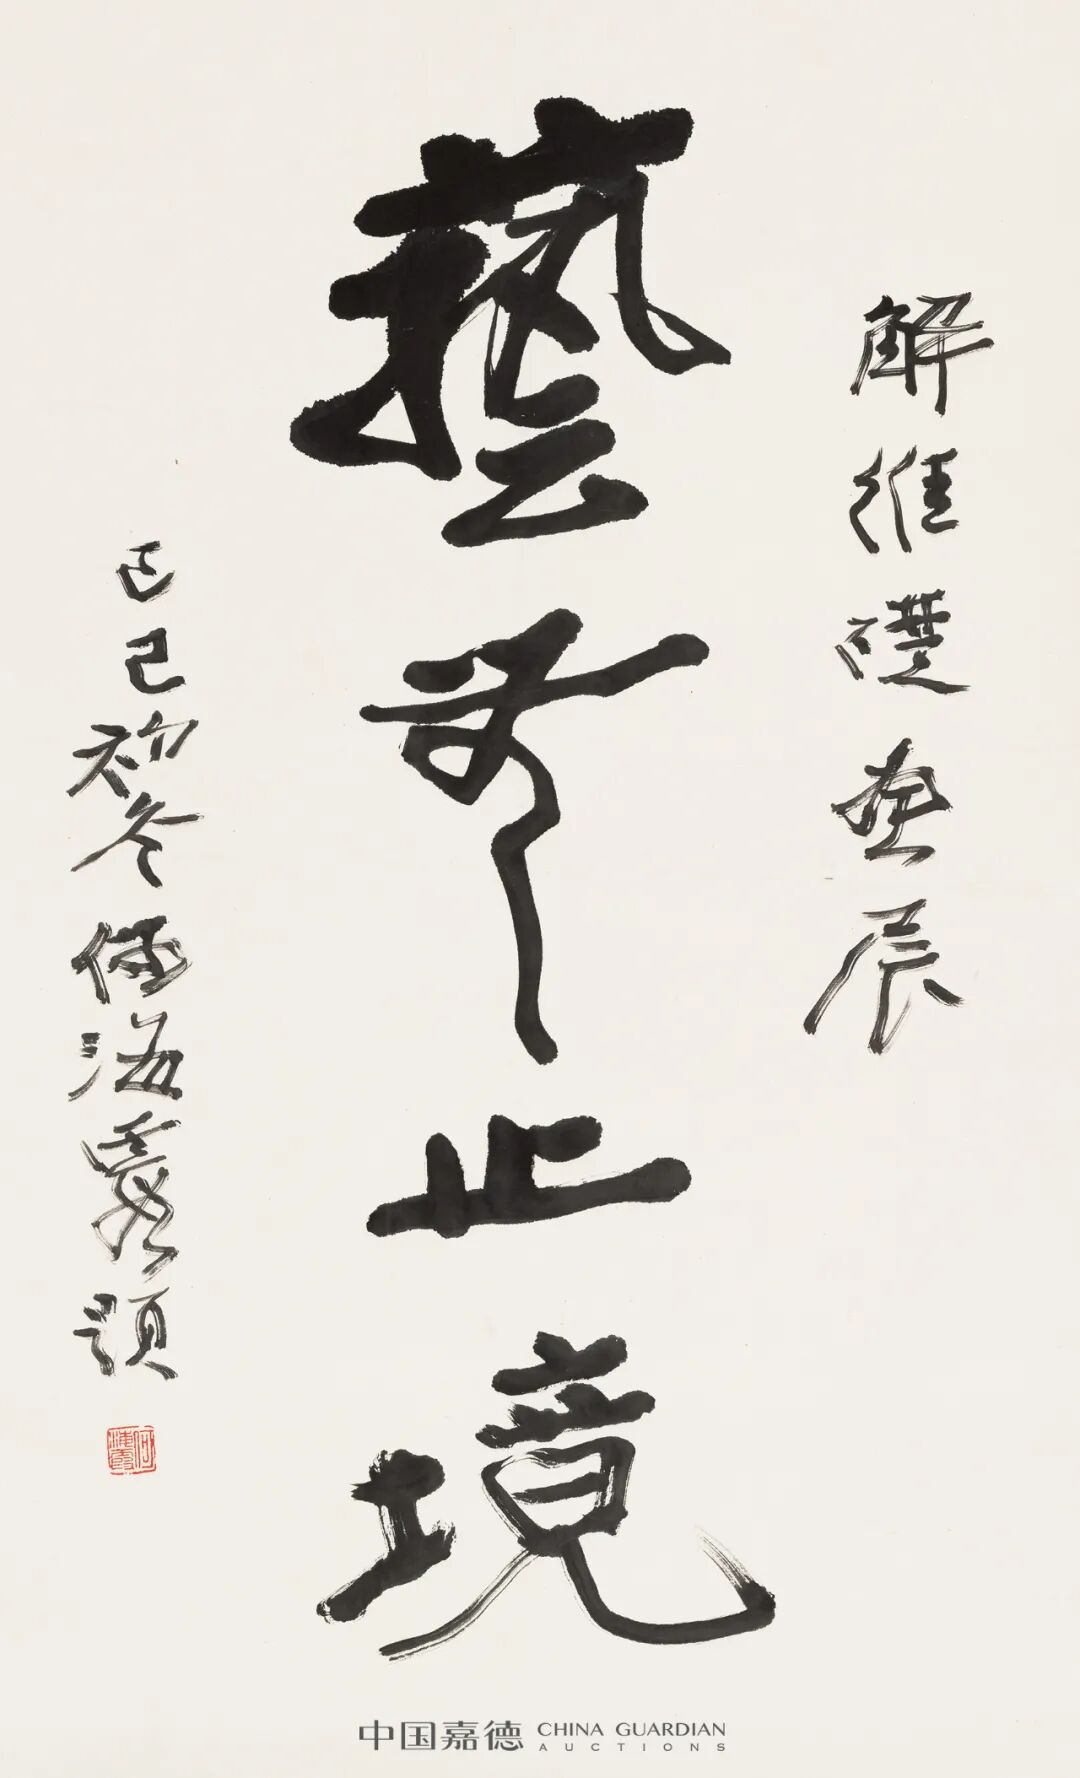 解維礎畫展
藝無止境
己巳初冬何海霞題
何海霞
中国嘉德 CHINA GUARDIAN
AUCTIONS